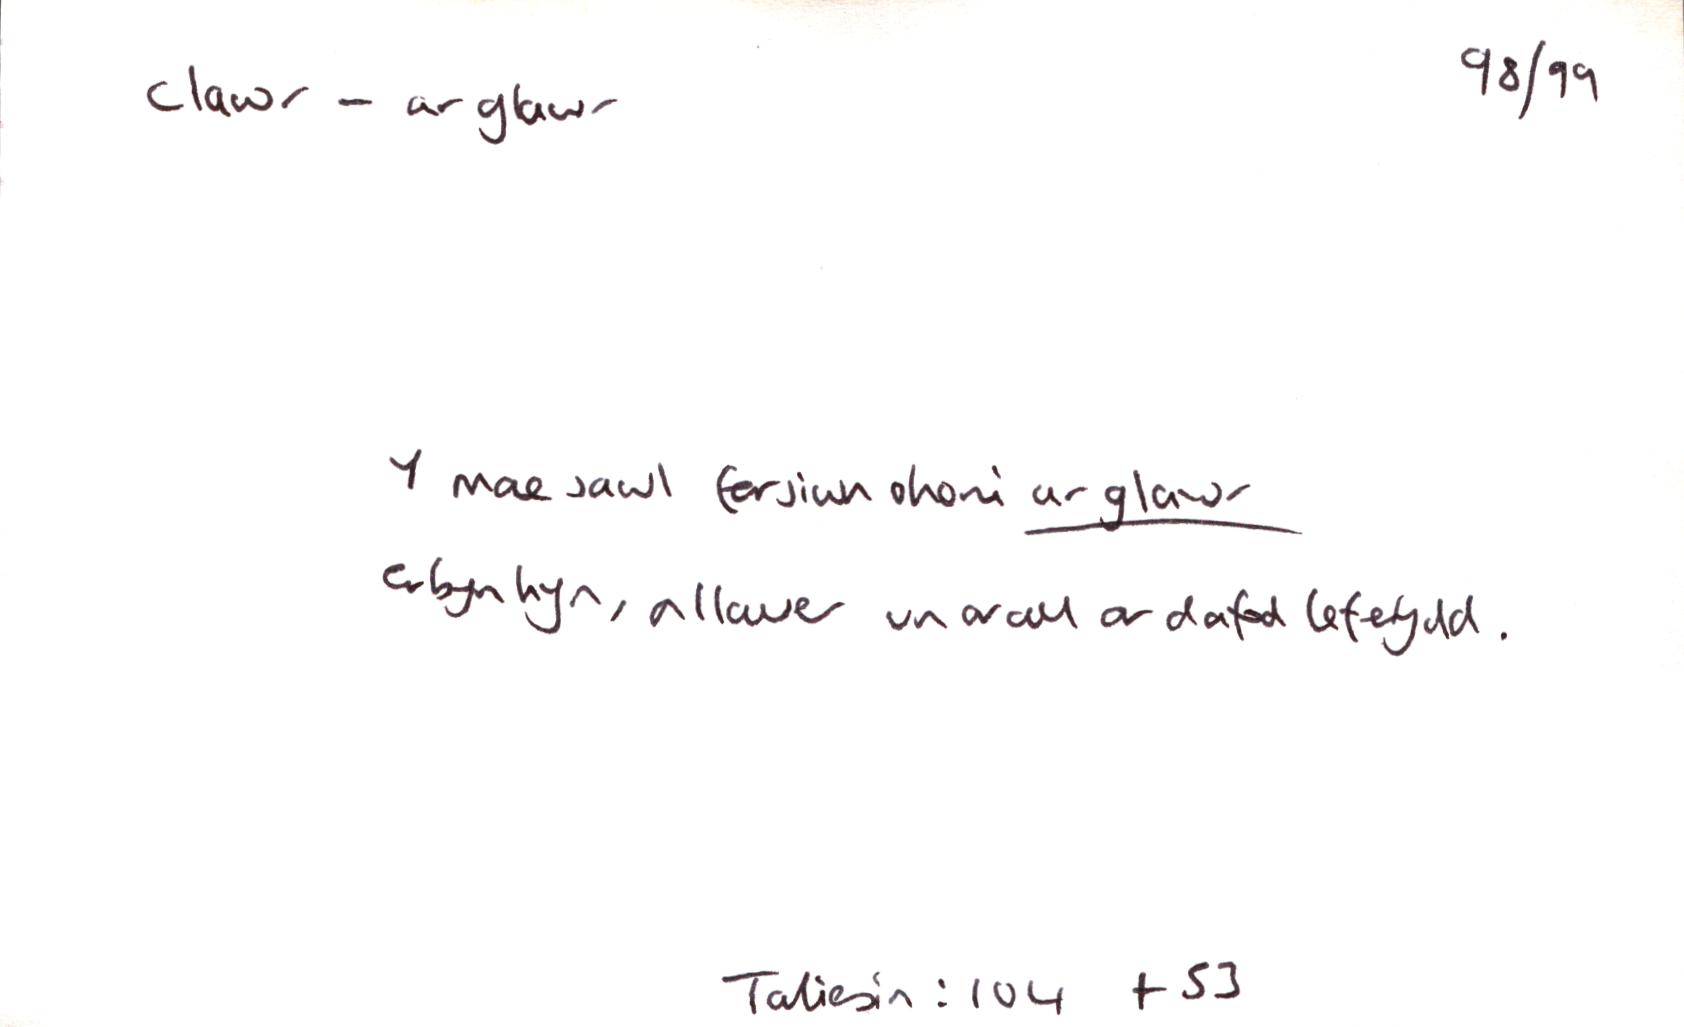 clawr – ar glawr 98/99
Y mae sawl fersiwn ohoni ar glawr
erbyn hyn, a llawer un arall ar dafod leferydd.
Taliesin : 104 t 53